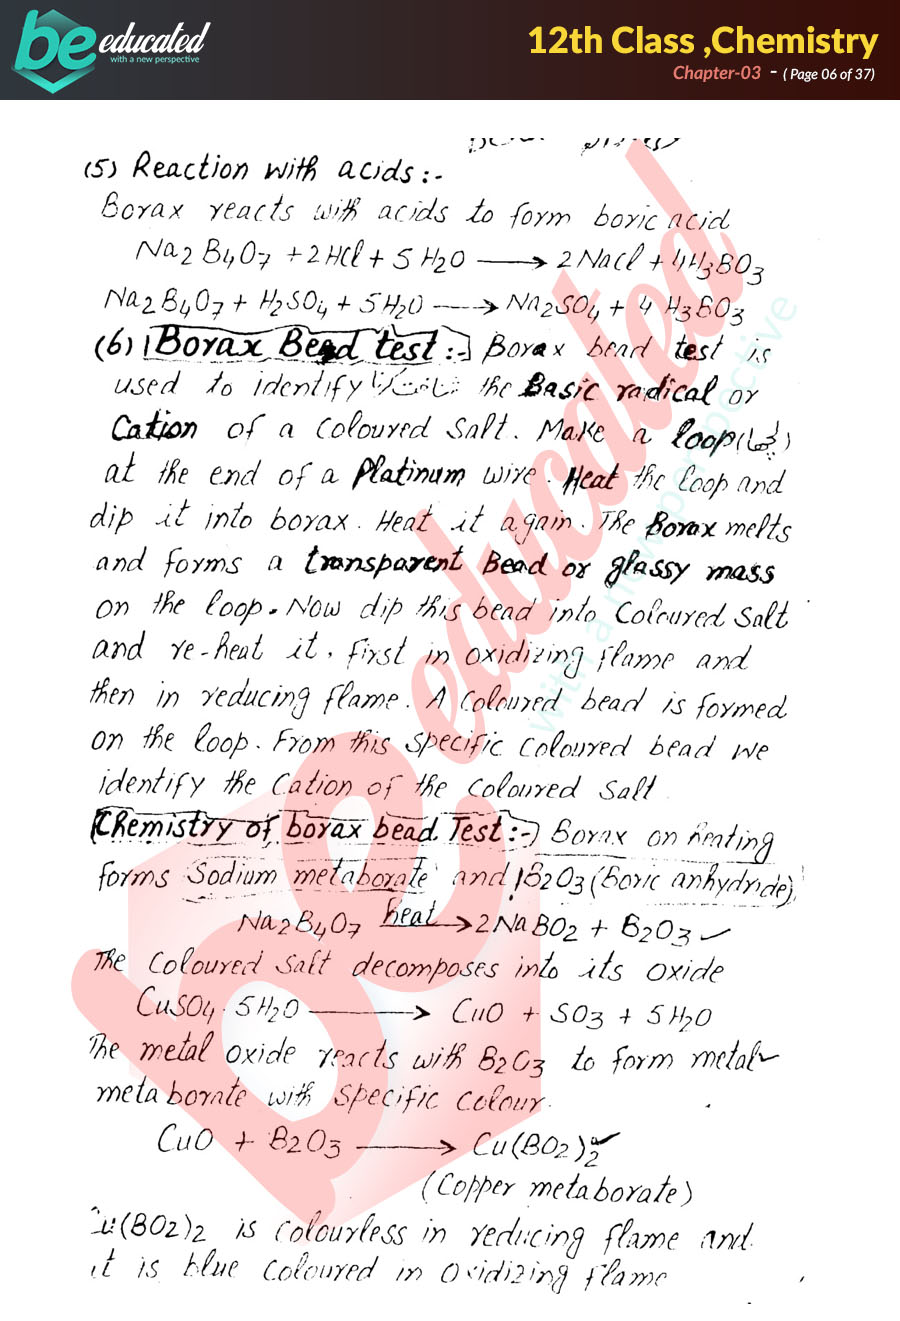 be educated
with a new perspective
12th Class ,Chemistry
Chapter-03 - ( Page 06 of 37)
(5) Reaction with acids:-
Borax reacts with acids to form boric acid
Na2B4O7 + 2HCl + 5H2O ⟶ 2NaCl + 4H3BO3
Na2B4O7 + H2SO4 + 5H2O ⟶ Na2SO4 + 4H3BO3
(6) Borax Bead test:- Borax bead test is
used to identify the Basic radical or
Cation of a coloured salt. Make a loop
at the end of a Platinum wire. Heat the loop and
dip it into borax. Heat it again. The Borax melts
and forms a transparent Bead or glassy mass
on the loop. Now dip this bead into Coloured Salt
and re-heat it, first in oxidizing flame and
then in reducing flame. A coloured bead is formed
on the loop. From this specific coloured bead we
identify the Cation of the coloured salt
Chemistry of borax bead Test:- Borax on heating
forms Sodium metaborate and B2O3 (Boric anhydride)
Na2B4O7 heat⟶ 2NaBO2 + B2O3
The coloured salt decomposes into its oxide
CuSO4.5H2O ⟶ CuO + SO3 + 5H2O
The metal oxide reacts with B2O3 to form metal
metaborate with specific colour.
CuO + B2O3 ⟶ Cu(BO2)2
(Copper metaborate)
Cu(BO2)2 is colourless in reducing flame and
it is blue coloured in oxidizing flame
be educated
with a new perspective